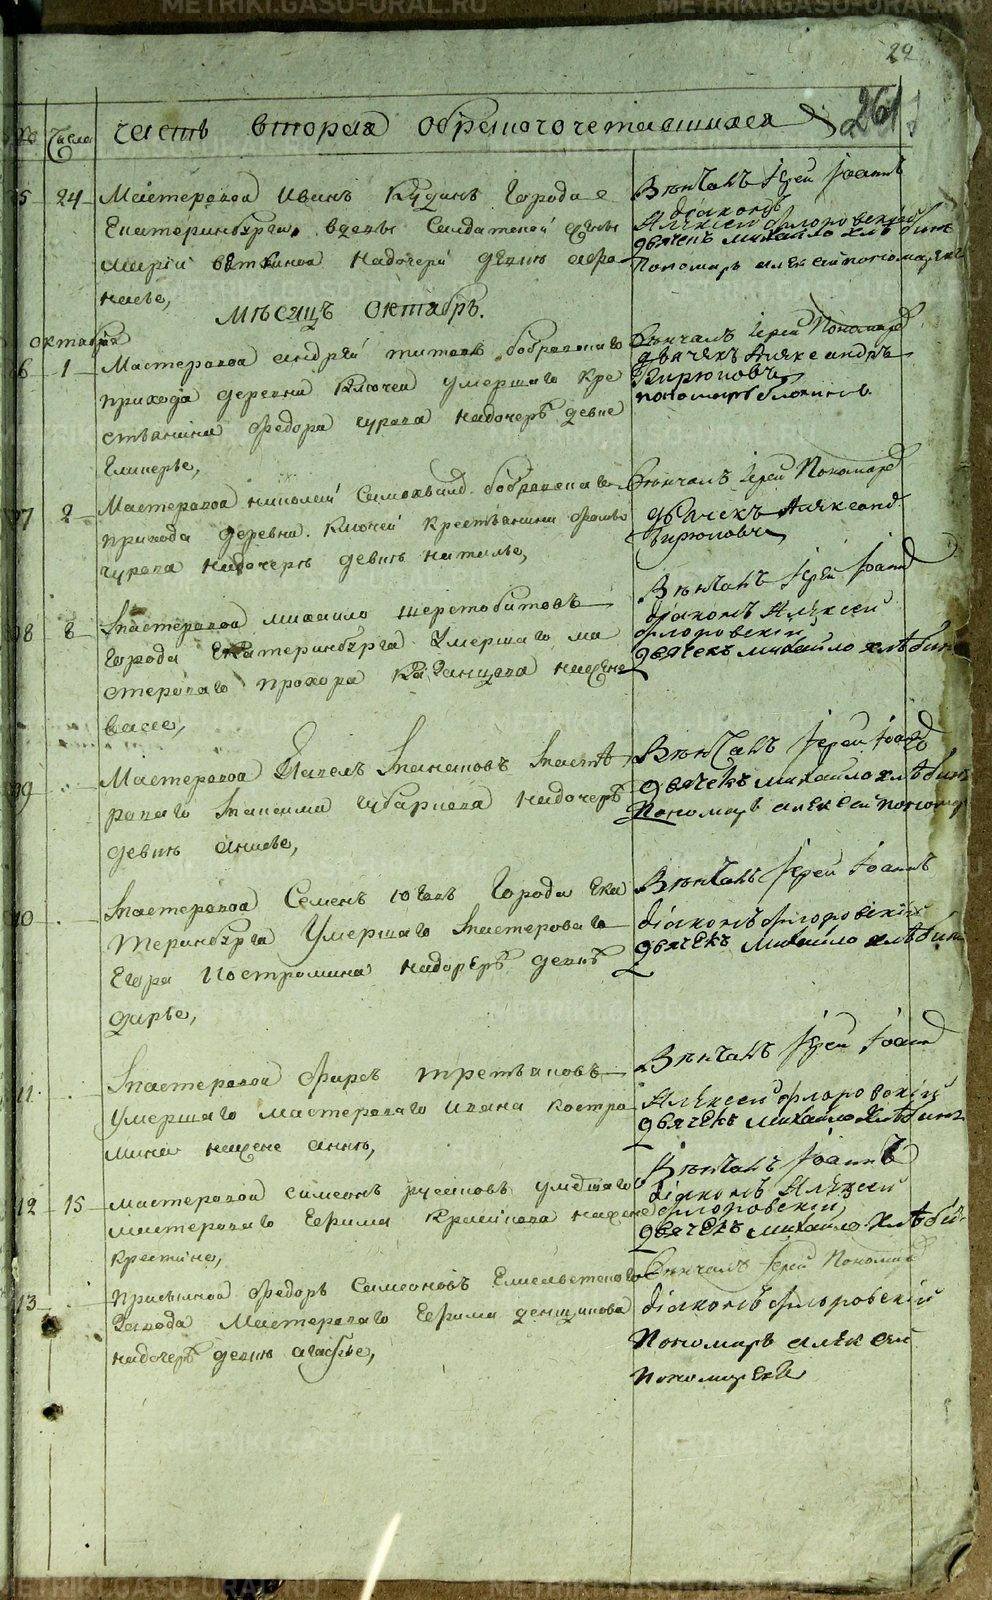 METRIKI.GASU-URAL.RU METRIKI.GASU-URAL.RU
29
261
Числа часть вторая обрачочетавшихся
5 24 Мастеровой Иванъ Кудинъ города е
Екатеринбурга, вдовы Салдатской жены
марии вяткиной надочери девице афро
насье,
Венчалъ Іерей Іоаннъ
діаконъ
Алексей Флоровскій
дьячекъ михайло хлебинъ
Пономарь алексей пономаревъ
Месяцъ Октябрь.
октября
6 1 Мастеровой андрей титовъ бобровскаго
прихода деревни Ключей умершаго кре
стьянина федора чурова надочере девке
гликерье,
Венчалъ Іерей Пономарев
дьячекъ Александръ
Бирюковъ
пономарь блохинъ
07 2 Мастеровой николай Самохвалов бобровскаго
прихода деревни Ключей крестьянина
чурова надочере девке наталье,
Венчалъ Іерей Пономарев
дьячекъ Александ
Бирюковъ
08 8 Мастеровой михайло шерстобитовъ
города Екатеринбурга умершаго ма
стероваго прохора казанцова на жене
васе,
Венчалъ Іерей Іоанн
діаконъ Алексей
флоровскій
дьячекъ михайло хлебин
09 Мастеровой Павелъ Мастѣ
роваго Максима надочере
девице анисье,
Венчалъ Іерей Іоанн
дьячекъ михайло хлебинъ
Пономарь алексей пономар
10 Мастеровой Семенъ города ека
теринбурга Умершаго Мастероваго
Егора Костромина надочере девке
дарье,
Венчалъ Іерей Іоаннъ
діаконъ флоровскій
дьячекъ михайло хлебин
11 Мастеровой Фирсъ третьяковъ
умершаго мастероваго ивана костро
мина на жене анне,
Венчалъ Іерей Іоанн
Алексей флоровскій
дьячекъ михайло хлебинъ
12 15 мастеровой симеонъ русиновъ умершаго
мастероваго Ефима на жене
кристине,
Венчалъ Іоаннъ
діаконъ Алексей
флоровскій
дьячекъ михайло хлеби
13 присыльной федоръ Симеоновъ Елисаветскаго
завода Мастероваго Ефима денщикова
надочере девице агафье,
Венчалъ Іерей Пономарев
діаконъ флоровскій
Пономарь алексей
Пономаревъ
METRIKI.GASU-URAL.RU METRIKI.GASU-URAL.RU